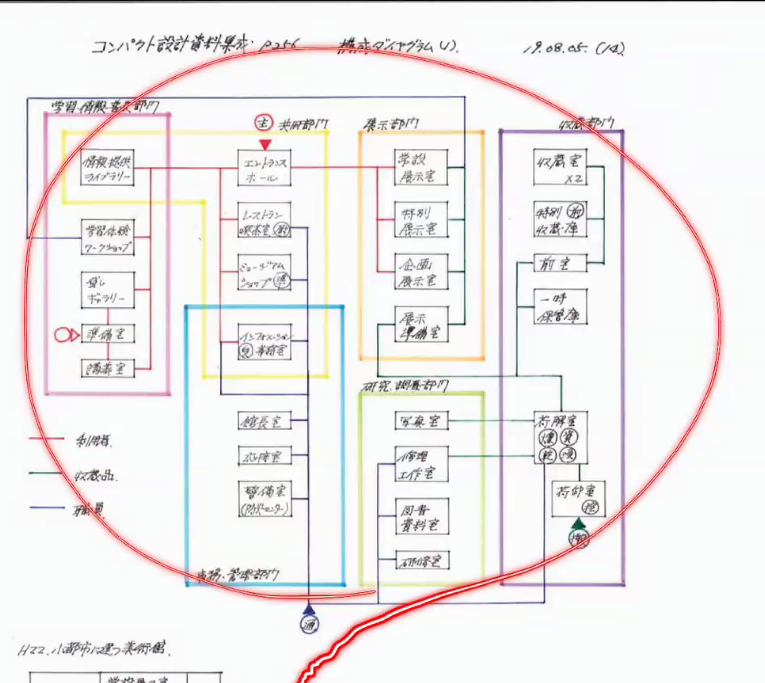 コンパクト設計資料集成 P256 構成ダイヤグラム(1). 19.08.05.(14)
学習・情報普及部門
主 共用部門
展示部門
収蔵部門
情報提供
ライブラリー
エントランス
ホール
常設
展示室
収蔵室
×2
学習体験
ワークショップ
レストラン
喫茶室
特別
展示室
特別
収蔵庫
前
貸し
ギャラリー
ミュージアム
ショップ
企画
展示室
前室
準備室
インフォメーション
事務室
展示
準備室
一時
保管庫
講義室
研究・調査部門
館長室
写真室
荷解室
利用者
応接室
修理
工作室
収蔵品
警備室
(防災センター)
図書
資料室
荷卸室
職員
研修室
事務・管理部門
通
H22.小都市に建つ美術館.